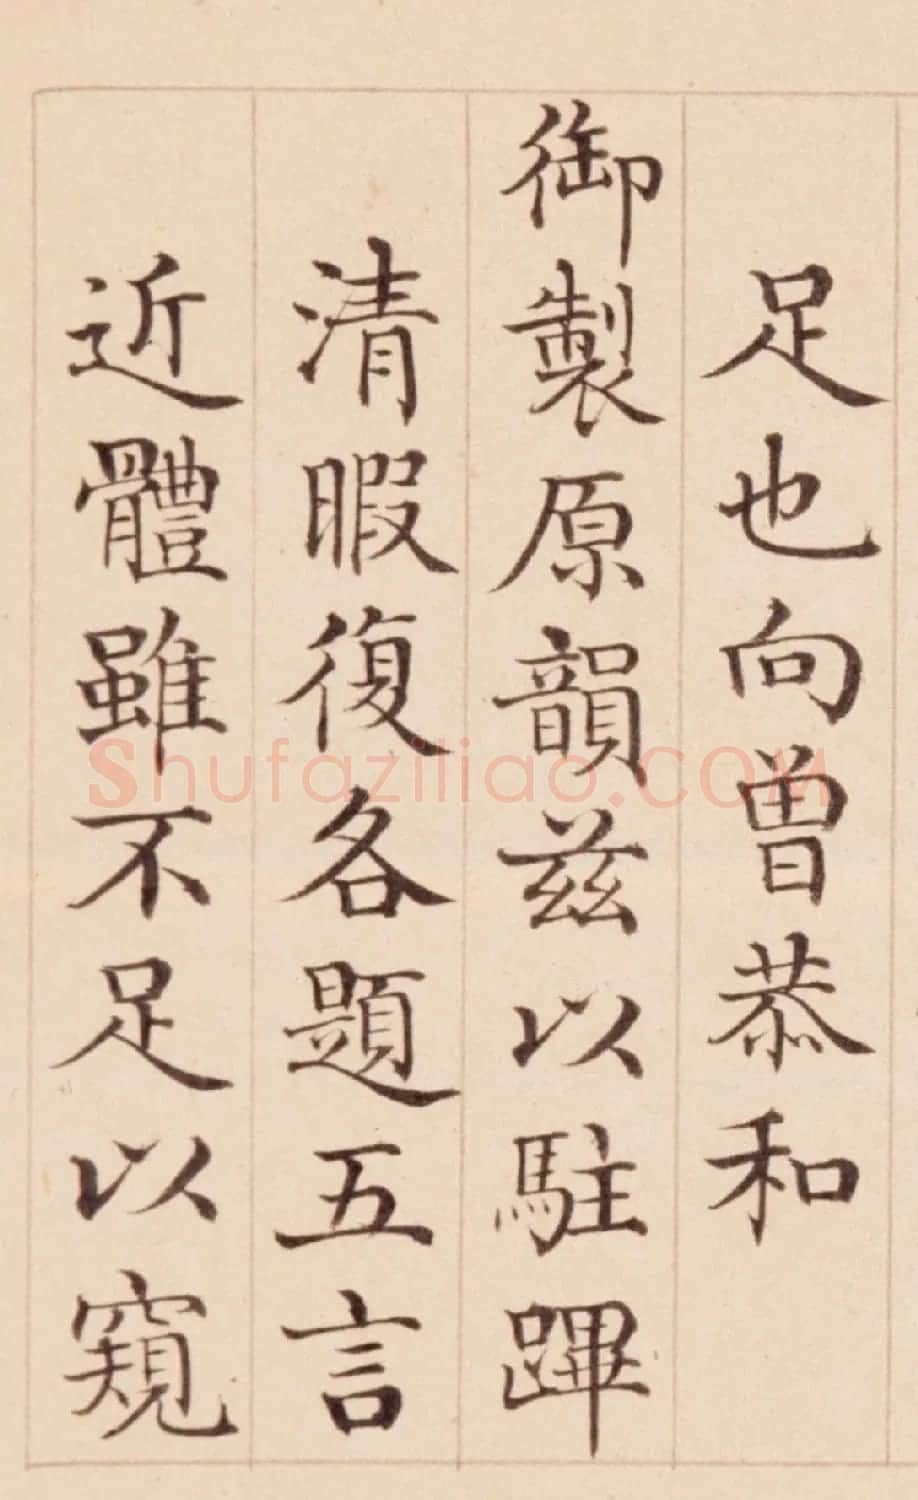 足也向曾恭和
御製原韻茲以駐蹕
清暇復各題五言
近體雖不足以窺
Shufaziliao.COM